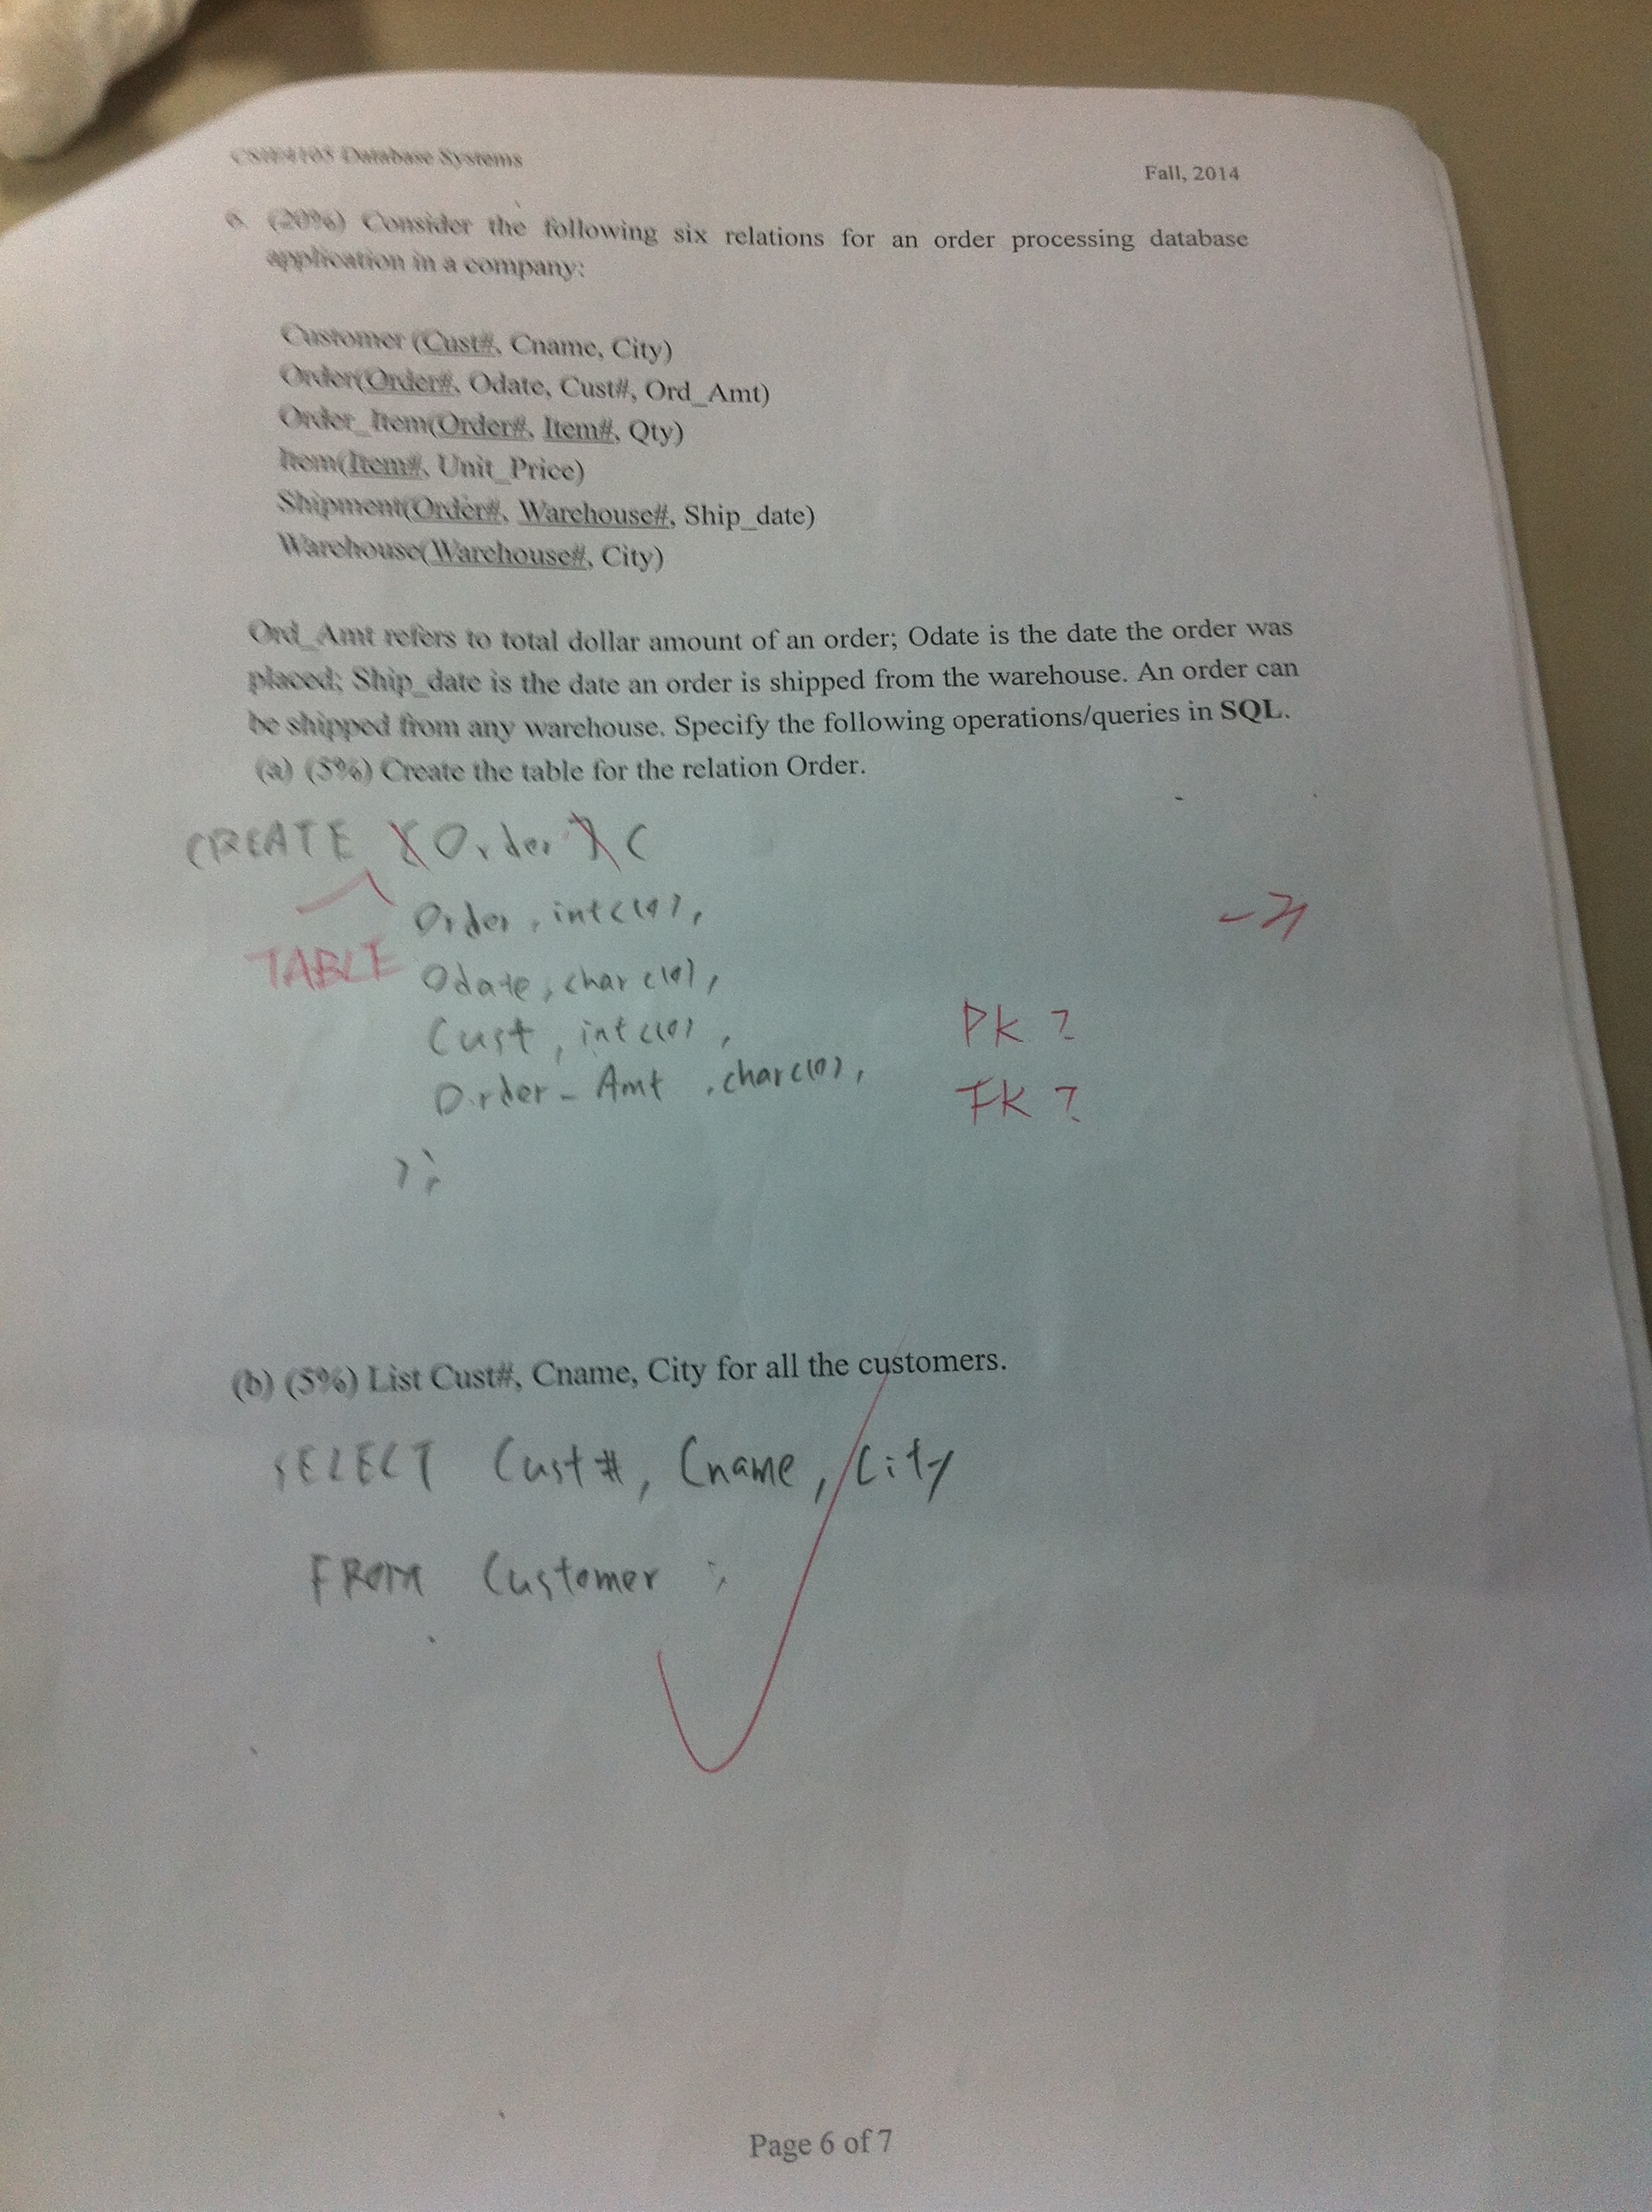 Database Systems
Fall, 2014
(20%) Consider the following six relations for an order processing database
application in a company:
Customer (Cust#, Cname, City)
Order(Order#, Odate, Cust#, Ord_Amt)
Order_Item(Order#, Item#, Qty)
Item(Item#, Unit_Price)
Shipment(Order#, Warehouse#, Ship_date)
Warehouse(Warehouse#, City)
Ord_Amt refers to total dollar amount of an order; Odate is the date the order was
placed; Ship_date is the date an order is shipped from the warehouse. An order can
be shipped from any warehouse. Specify the following operations/queries in SQL.
(a) (5%) Create the table for the relation Order.
CREATE Order (
TABLE
Order, int(10),
Odate, char(10),
Cust, int(10),
Order_Amt, char(10),
);
PK ?
FK ?
(b) (5%) List Cust#, Cname, City for all the customers.
SELECT Cust#, Cname, City
FROM Customer ;
Page 6 of 7